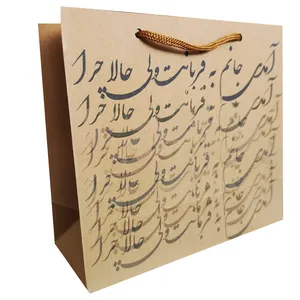 آمدی جانم به قربانت ولی حالا چرا
آمدی جانم به قربانت ولی حالا چرا
آمدی جانم به قربانت ولی حالا چرا
آمدی جانم به قربانت ولی حالا چرا
آمدی جانم به قربانت ولی حالا چرا
آمدی جانم به قربانت ولی حالا چرا